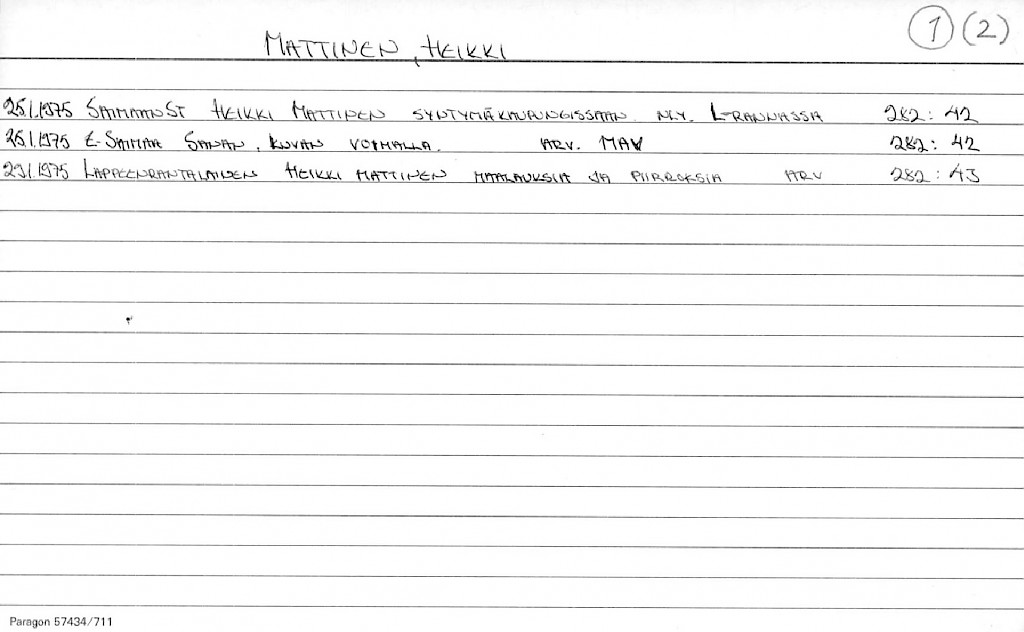 1 (2)
MATTINEN, HEIKKI
25.1.1975 SAIMAANST HEIKKI MATTINEN SYNTYMÄKAUPUNGISSAAN. NLY. L-RANNASSA 282: 42
25.1.1975 E-SAIMAA SANAN, KUVAN VOIMALLA. ARV. MAV 282: 42
29.1.1975 LAPPEENRANTALAINEN HEIKKI MATTINEN MAALAUKSIA JA PIIRROKSIA ARV 282: 43
Paragon 57434/711